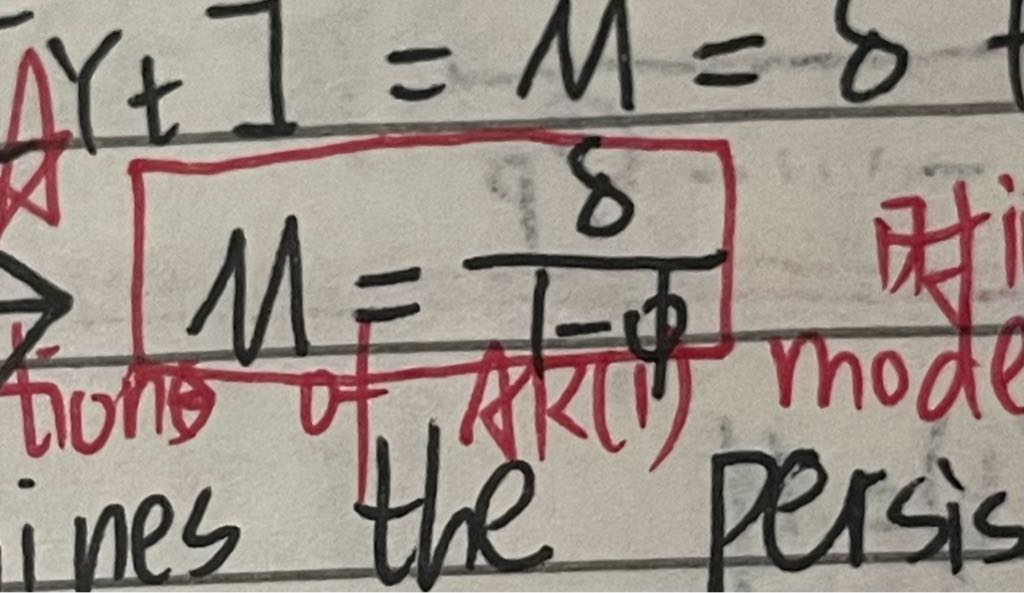 Yt] = μ = δ +
A
μ = δ / 1-φ 时i
tions of AR(1) mode
ines the persis